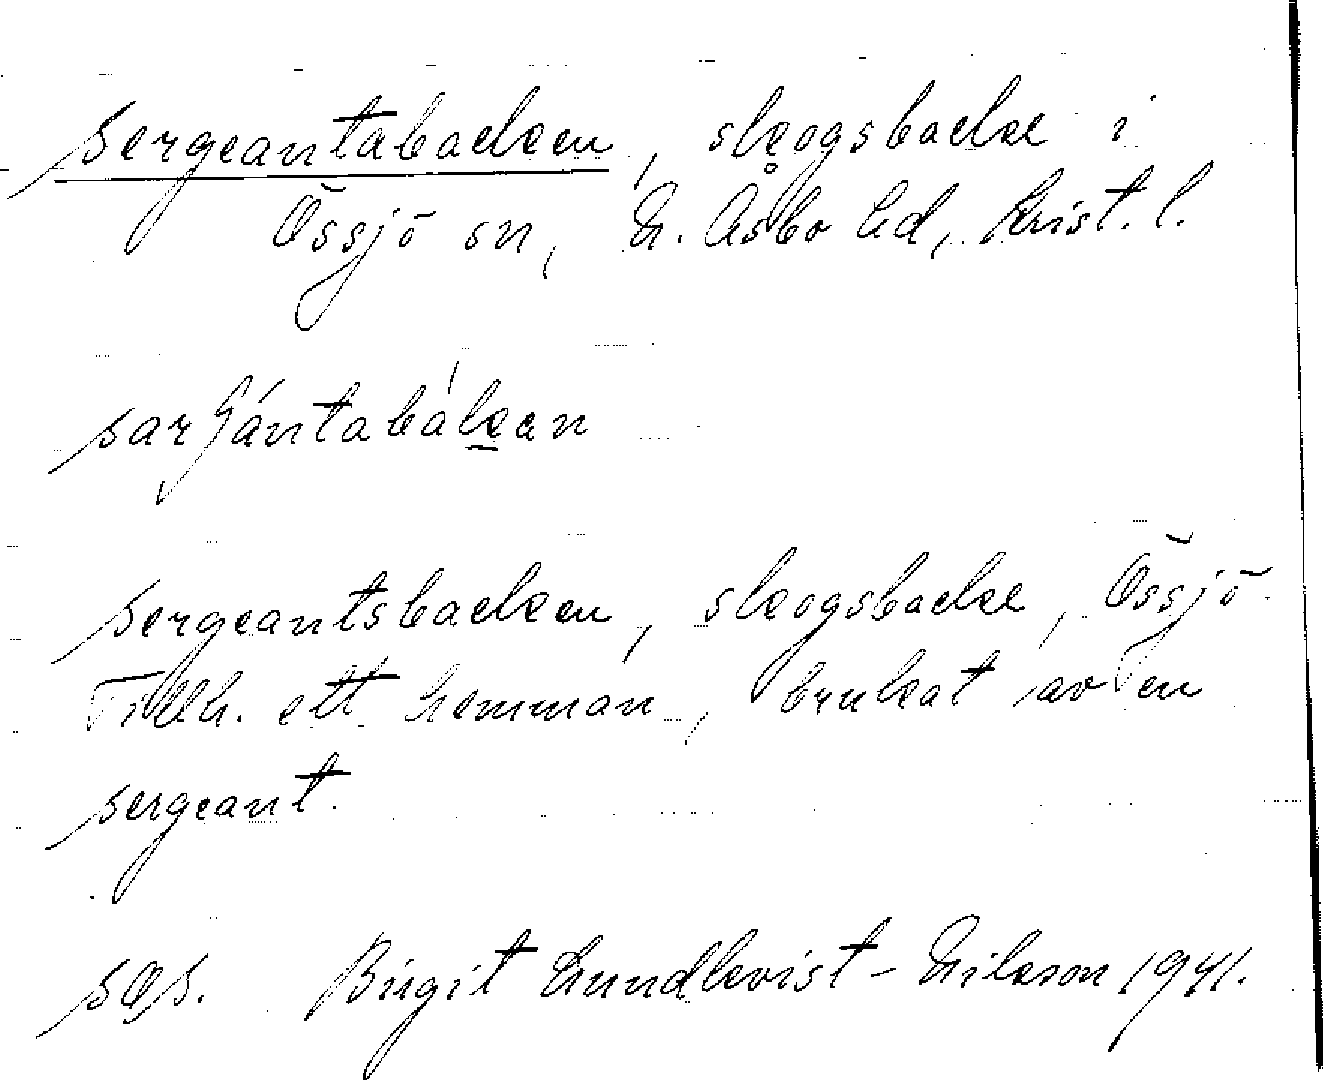 Sergeantabacken, skogsbacke i
Össjö sn, N. Åsbo hd, Krist. l.
sarʃántabákan
Sergeantsbacken, skogsbacke, Össjö.
Tillh. ett hemman, brukat av en
sergeant.
Birgit Lundkvist-Nilsson 1941.